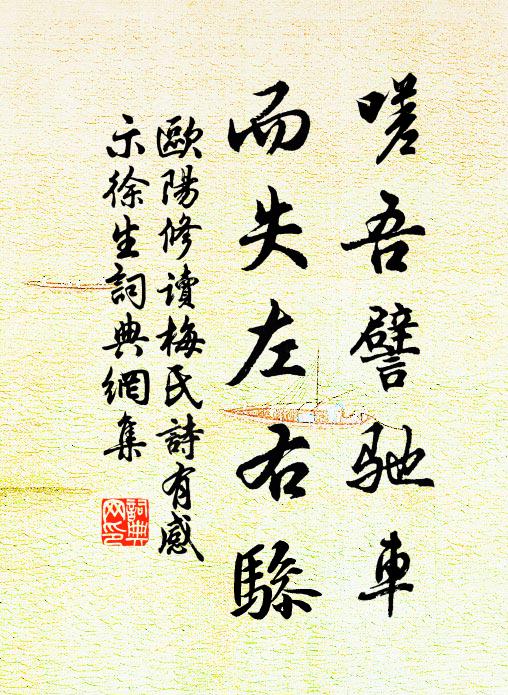 嗟吾譬馳車
而失左右驂
歐陽修讀梅氏詩有感
示徐生詞典網集
詞典
网印